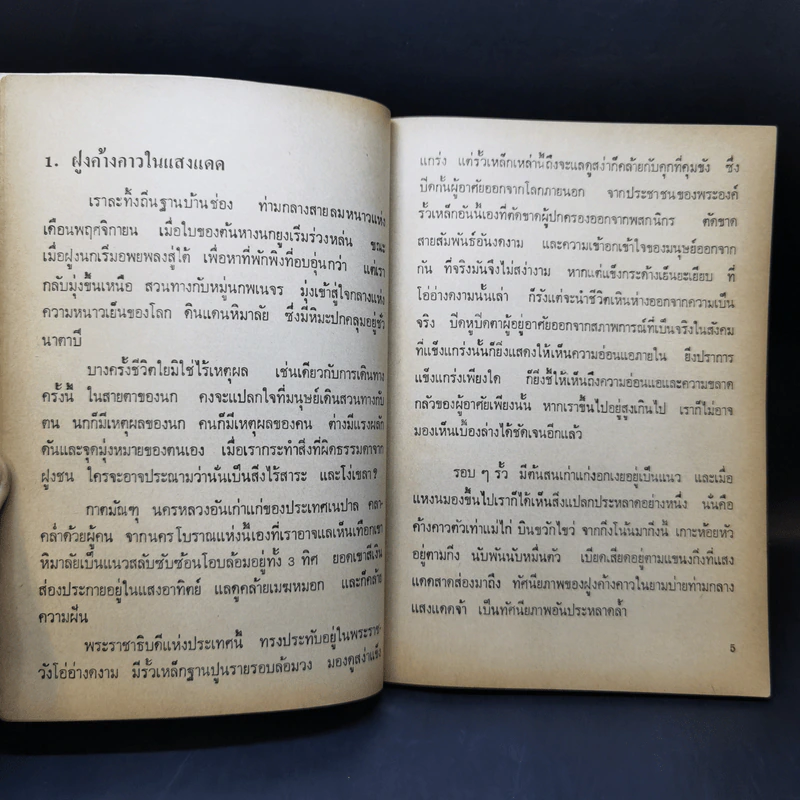 1. ฝูงค้างคาวในแสงแดด
เราละทิ้งถิ่นฐานบ้านช่อง ท่ามกลางสายลมหนาวแห่ง
เดือนพฤศจิกายน เมื่อใบของต้นหางนกยูงเริ่มร่วงหล่น ขณะ
เมื่อฝูงนกเริ่มอพยพลงสู่ใต้ เพื่อหาที่พักพิงที่อบอุ่นกว่า แต่เรา
กลับมุ่งขึ้นเหนือ สวนทางกับหมู่นกพเนจร มุ่งเข้าสู่ใจกลางแห่ง
ความหนาวเย็นของโลก ดินแดนหิมาลัย ซึ่งมีหิมะปกคลุมอยู่ชั่ว
นาตาปี
บางครั้งชีวิตใยมิใช่ไร้เหตุผล เช่นเดียวกับการเดินทาง
ครั้งนี้ ในสายตาของนก คงจะแปลกใจที่มนุษย์เดินสวนทางกับ
ตน นกก็มีเหตุผลของนก คนก็มีเหตุผลของคน ต่างมีแรงผลัก
ดันและจุดมุ่งหมายของตนเอง เมื่อเรากระทำสิ่งที่ผิดธรรมดาจาก
ฝูงชน ใครจะอาจประณามว่านั่นเป็นสิ่งไร้สาระ และโง่เขลา?
กาตมัณฑุ นครหลวงอันเก่าแก่ของประเทศเนปาล คลา-
คล่ำด้วยผู้คน จากนครโบราณแห่งนี้เองที่เราอาจแลเห็นเทือกเขา
หิมาลัยเป็นแนวสลับซับซ้อนโอบล้อมอยู่ทั้ง 3 ทิศ ยอดเขาสีเงิน
ส่องประกายอยู่ในแสงอาทิตย์ แลดูคล้ายเมฆหมอก และก็คล้าย
ความฝัน
พระราชาธิบดีแห่งประเทศนี้ ทรงประทับอยู่ในพระราช-
วังโอ่อ่างดงาม มีรั้วเหล็กฐานปูนรายรอบล้อมวง มองดูสง่าแข็ง
แกร่ง แต่รั้วเหล็กเหล่านี้ถึงจะแลดูสง่าก็คล้ายกับคุกที่คุมขัง ซึ่ง
ปิดกั้นผู้อาศัยออกจากโลกภายนอก จากประชาชนของพระองค์
รั้วเหล็กอันนี้เองที่ตัดขาดผู้ปกครองออกจากพสกนิกร ตัดขาด
สายสัมพันธ์อันงดงาม และความเข้าอกเข้าใจของมนุษย์ออกจาก
กัน ที่จริงมันจึงไม่สง่างาม หากแต่แข็งกระด้างเย็นยะเยียบ ที่
โอ่อ่างดงามนั้นเล่า ก็รังแต่จะนำชีวิตเหินห่างออกจากความเป็น
จริง ปิดหูปิดตาผู้อยู่อาศัยออกจากสภาพการณ์ที่เป็นจริงในสังคม
ที่แข็งแกร่งนั้นก็ยิ่งแสดงให้เห็นความอ่อนแอภายใน ยิ่งปราการ
แข็งแกร่งเพียงใด ก็ยิ่งชี้ให้เห็นถึงความอ่อนแอและความขลาด
กลัวของผู้อาศัยเพียงนั้น หากเราขึ้นไปอยู่สูงเกินไป เราก็ไม่อาจ
มองเห็นเบื้องล่างได้ชัดเจนอีกแล้ว
รอบ ๆ รั้ว มีต้นสนเก่าแก่งอกเงยอยู่เป็นแนว และเมื่อ
แหงนมองขึ้นไปเราก็ได้เห็นสิ่งแปลกประหลาดอย่างหนึ่ง นั่นคือ
ค้างคาวตัวเท่าแม่ไก่ บินขวักไขว่ จากกิ่งโน้นมากิ่งนี้ เกาะห้อยหัว
อยู่ตามกิ่ง นับพันนับหมื่นตัว เบียดเสียดอยู่ตามแขนงกิ่งที่แสง
แดดสาดส่องมาถึง ทัศนียภาพของฝูงค้างคาวในยามบ่ายท่ามกลาง
แสงแดดจ้า เป็นทัศนียภาพอันประหลาดล้ำ
5